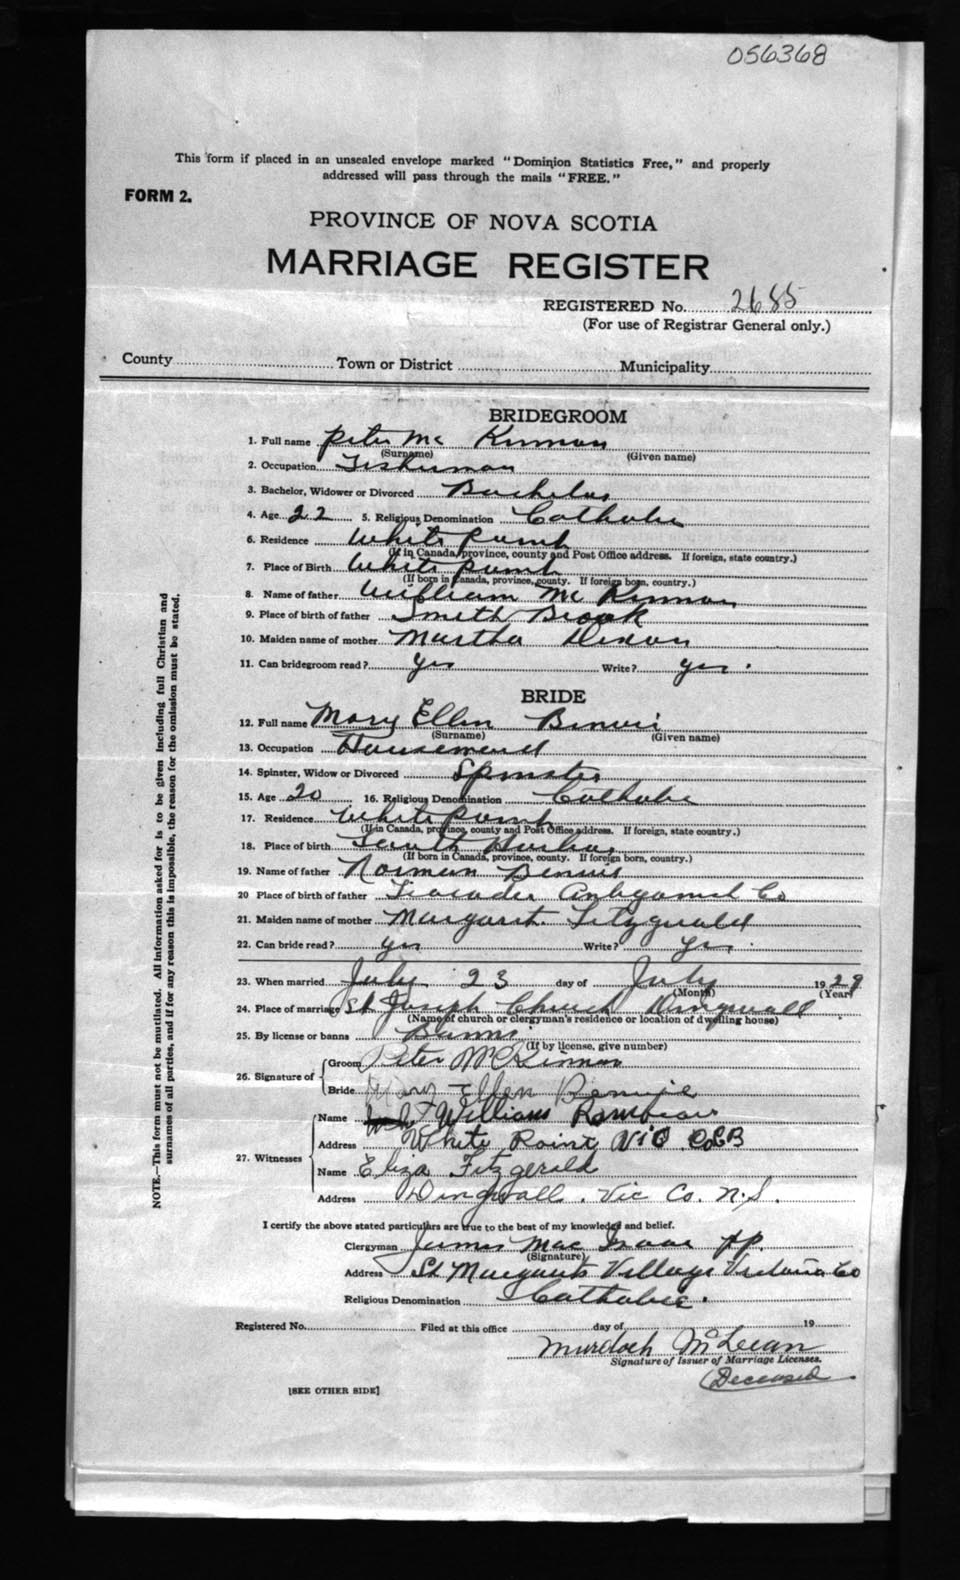 056368
This form if placed in an unsealed envelope marked "Dominion Statistics Free," and properly
addressed will pass through the mails "FREE."
FORM 2.
PROVINCE OF NOVA SCOTIA
MARRIAGE REGISTER
REGISTERED No. 2685
(For use of Registrar General only.)
County Town or District Municipality
BRIDEGROOM
1. Full name Peter Mc Kinnon
(Surname) (Given name)
2. Occupation Fisherman
3. Bachelor, Widower or Divorced Bachelor
4. Age 22 5. Religious Denomination Catholic
6. Residence White Point
(If in Canada, province, county and Post Office address. If foreign, state country.)
7. Place of Birth White Point
(If born in Canada, province, county. If foreign born, country.)
8. Name of father William Mc Kinnon
9. Place of birth of father Smith Brook
10. Maiden name of mother Martha Dixon
11. Can bridegroom read? yes Write? yes.
BRIDE
12. Full name Mary Ellen
(Surname) (Given name)
13. Occupation Housemaid
14. Spinster, Widow or Divorced Spinster
15. Age 20 16. Religious Denomination Catholic
17. Residence White Point
(If in Canada, province, county and Post Office address. If foreign, state country.)
18. Place of birth South Harbor
(If born in Canada, province, county. If foreign born, country.)
19. Name of father Norman
20 Place of birth of father Co
21. Maiden name of mother Margaret Fitzgerald
22. Can bride read? yes Write? yes.
23. When married July 23 day of July 1929
(Month) (Year)
24. Place of marriage St Joseph Church Dingwall
(Name of church or clergyman's residence or location of dwelling house)
25. By license or banns Banns
(If by license, give number)
26. Signature of
Groom Peter McKinnon
Bride Mary Ellen Bennie
27. Witnesses
Name William
Address White Point Vic Co CB
Name Eliza Fitzgerald
Address Dingwall. Vic Co. N.S.
I certify the above stated particulars are true to the best of my knowledge and belief.
Clergyman James Mac Isaac pp.
(Signature)
Address St Margarets Village Victoria Co
Religious Denomination Catholic.
Registered No. Filed at this office day of 19
Murdoch McLean
Signature of Issuer of Marriage Licenses.
(Deceased
[SEE OTHER SIDE]
NOTE.—This form must not be mutilated. All information asked for is to be given including full Christian and
surnames of all parties, and if for any reason this is impossible, the reason for the omission must be stated.